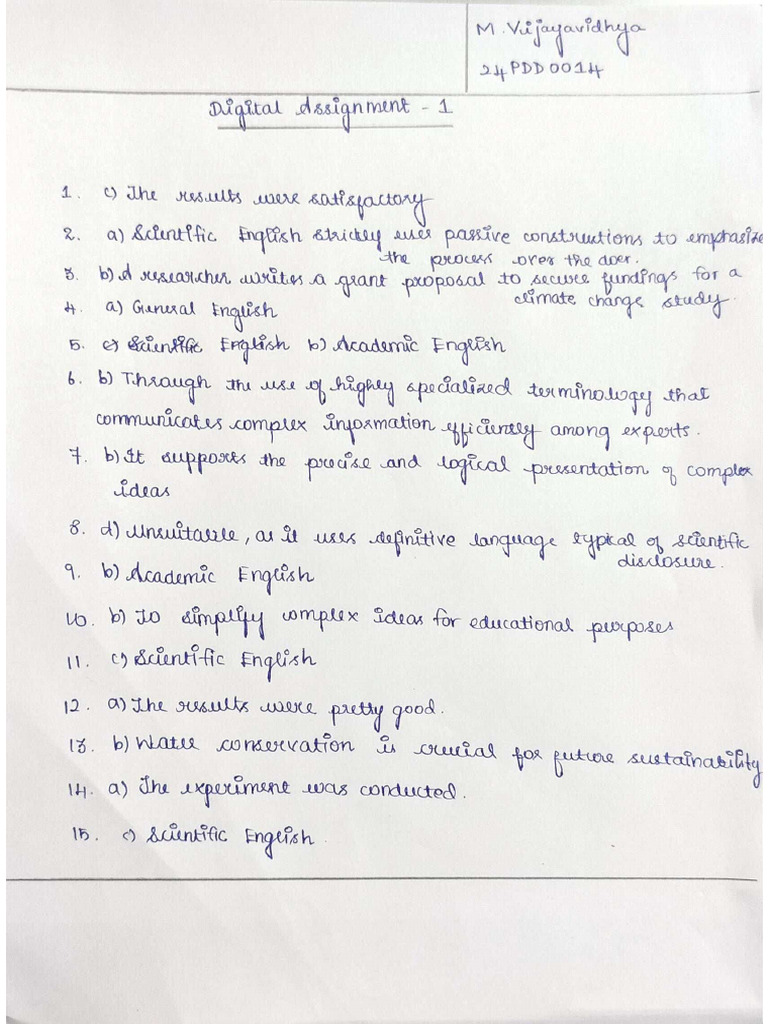 M. Vijayavidhya
24PDD0014
Digital Assignment - 1
1. c) The results were satisfactory
2. a) Scientific English strictly uses passive constructions to emphasize
the process over the doer.
3. b) A researcher writes a grant proposal to secure fundings for a
climate change study.
4. a) General English
5. c) Scientific English b) Academic English
6. b) Through the use of highly specialized terminology that
communicates complex information efficiently among experts.
7. b) It supports the precise and logical presentation of complex
ideas
8. d) Unsuitable, as it uses definitive language typical of scientific
disclosure.
9. b) Academic English
10. b) To simplify complex ideas for educational purposes
11. c) Scientific English
12. a) The results were pretty good.
13. b) Water conservation is crucial for future sustainability
14. a) The experiment was conducted.
15. c) Scientific English.